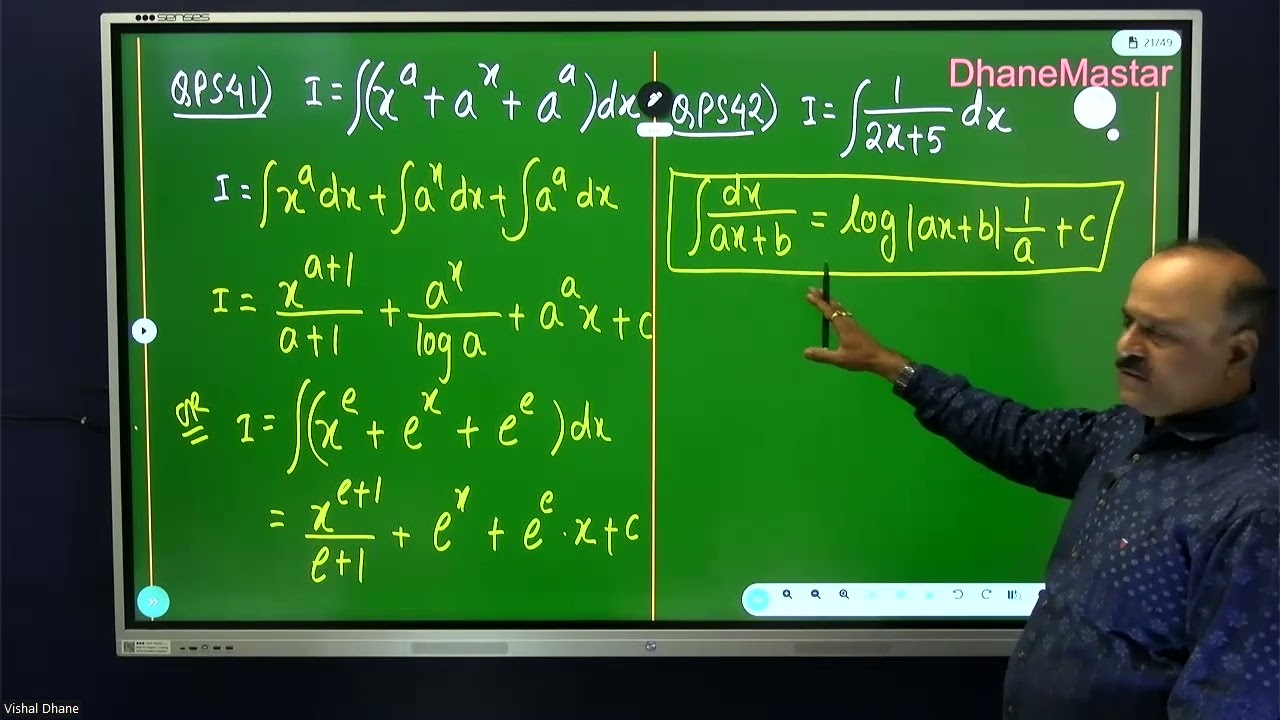 senses
21/49
DhaneMastar
QPS41) I = ∫(x^a + a^x + a^a)dx
I = ∫x^a dx + ∫a^x dx + ∫a^a dx
I = x^(a+1)/(a+1) + a^x/log a + a^a x + c
OR I = ∫(x^e + e^x + e^e)dx
= x^(e+1)/(e+1) + e^x + e^e · x + c
QPS42) I = ∫ 1/(2x+5) dx
∫ dx/(ax+b) = log|ax+b| 1/a + c
Vishal Dhane